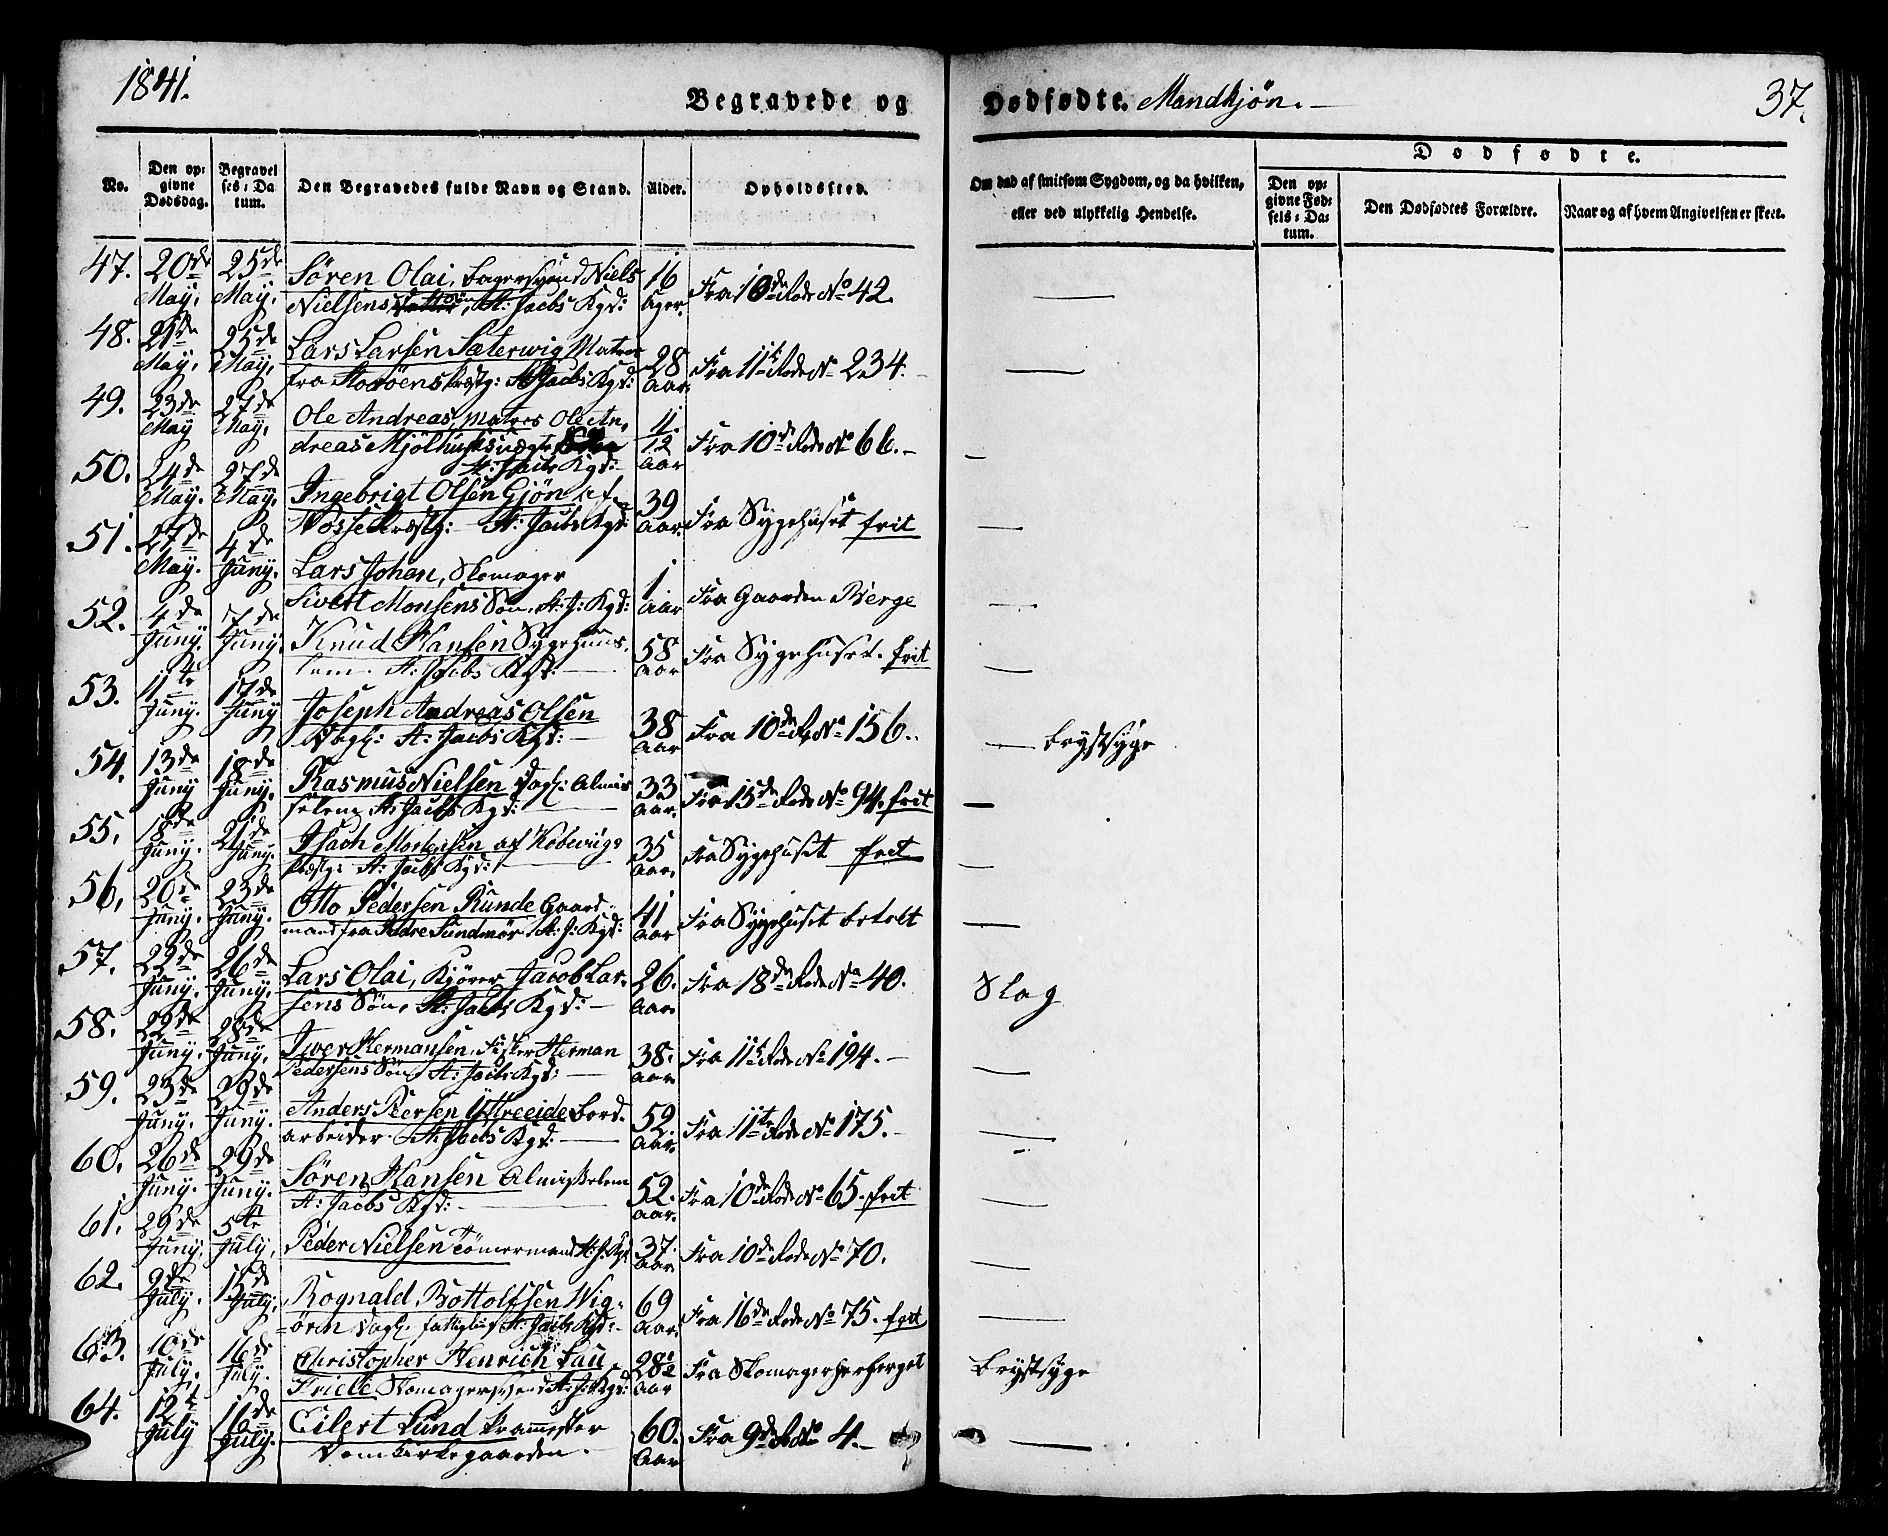 1841.
Begravede og
Dødfødte. Mandkjøn.
37.
No.
Den op-
givne
Dødsdag.
Begravel
ses-Da
tum.
Den Begravedes fulde Navn og Stand.
Alder.
Opholdssted.
Om død af smitsom Sygdom, og da hvilken,
eller ved ulykkelig Hendelse.
Dødfødte.
Den op-
givne Fød-
sels-Da-
tum.
Den Dødfødtes Forældre.
Naar og af hvem Angivelsen er skeet.
47. 20de May. 25de May. Sören Olai, Niels
Nielsens St: Jacobs Kgd: 16 Fra 10de Rode No 42.
48. 21de May. 25de May. Lars Larsen Sæterwig Matros
fra Præstg: St: Jacobs Kgd: 28 Aar. Fra 11te Rode No 234.
49. 23de May 27de May. Ole Andreas, Matros Ole An-
dreas 11/12 Aar Fra 10de Rode No 66.
St: Jacobs Kgd:
50. 24de May. 27de May. Ingebrigt Olsen Gjön af
Vosse Præstg: St: Jacobs Kgd: 39 Aar. Fra Sygehuset frit
51. 27de May. 4de Juny. Lars Johan, Skomager
Sivert Monsens Sön, St: J: Kgd: 1 Aar Fra Gaarden Berge
52. 4de Juny. 7de Juny. Knud Hansen Sygehuus-
lem. St: Jacobs Kgd: 58 Aar Fra Sygehuset. frit
53. 11te Juny. 17de Juny Joseph Andreas Olsen
Dagl: St: Jacobs Kgd: 38 Aar Fra 10de Rode No 156. Brystsyge
54. 13de Juny 18de Juny. Rasmus Nielsen Dagl: Almis
selem St: Jacobs Kgd: 33 Aar. Fra 15de Rode No 94. frit
55. 18de Juny. 21de Juny. Isach Mortensen af
Præstg: St: Jacobs Kgd: 35 Aar. Fra Sygehuset frit
56. 20de Juny. 23de Juny. Otto Pedersen Runde Gaard-
mand fra Sundmör St: J: Kgd: 41 Aar Fra Sygehuset betalt
57. 23de Juny. 26de Juny. Lars Olai, Kjörer Jacob Lar-
sens Sön, St: Jacobs Kgd: 26. Aar. Fra 18de Rode No 40. Slag
58. 22de Juny. 28de Juny. Iver Hermansen, Fisker Herman
Pedersens Sön, St: Jacobs Kgd: 38. Aar. Fra 11te Rode No 194.
59. 23de Juny. 29de Juny. Anders Persen Yttreeide Bord-
arbeider. St: Jacobs Kgd: 52. Aar. Fra 11te Rode No 175.
60. 26de Juny. 29de Juny. Sören Hansen Almisselem
St: Jacobs Kgd: 52. Aar. Fra 10de Rode No 65. frit
61. 29de Juny. 5te July. Peder Nielsen Tömermand St: J: Kgd 37. Aar. Fra 10de Rode No 70.
62. 9de July. 15de July. Rognald Bottolfsen Wig-
ören Dagl. fattig St: Jacobs Kgd: 69 Aar. Fra 16de Rode No 75. frit
63. 10de July. 16de July. Christopher Henrich Lau
Friele Skomagersvend St: J: Kgd: 28 1/2 Aar Fra Skomagerherberget Brystsyge
64. 12te July 16de July. Eilert Lund
Domkirkegaarden. 60. Aar. Fra 9de Rode No 4.